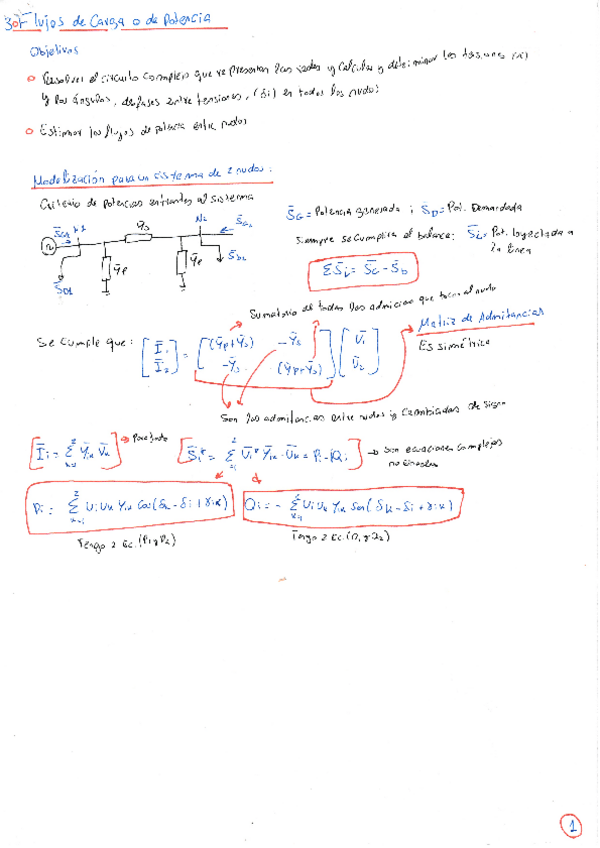 3. Flujos de Carga o de Potencia
Objetivos
Resolver el circuito complejo que representan las redes y calcular y determinar las tensiones
y los ángulos, desfases entre tensiones, (δi) en todos los nudos
Estimar los flujos de potencia entre nudos
Modelización para un sistema de 2 nudos:
Criterio de potencias entrantes al sistema
S̄G = Potencia generada ; S̄D = Pot. Demandada
Siempre se cumplirá el balance: S̄i = Pot. Inyectada a
la línea
ΣS̄i = S̄G - S̄D
N1 N2
S̄G1 S̄G2
S̄D1 S̄D2
Ȳs
Ȳp Ȳp
Sumatorio de todas las admitan que tocan al nudo
Matriz de Admitancias
Es simétrica
Se cumple que: [Ī1 Ī2] = [(Ȳp+Ȳs) -Ȳs -Ȳs (Ȳp+Ȳs)] [Ū1 Ū2]
Son las admitancias entre nudos y cambiadas de signo
Īi = Σ Ȳik Ūk
Para cada
S̄i* = Σ Ūi* Ȳik · Ūk = Pi - jQi
Son ecuaciones complejas
no lineales
Pi = Σ Ui Uk Yik cos(δk - δi + γik)
Qi = - Σ Ui Uk Yik sen(δk - δi + γik)
Tengo 2 Ec. (P1 y P2)
Tengo 2 Ec. (Q1 y Q2)
1